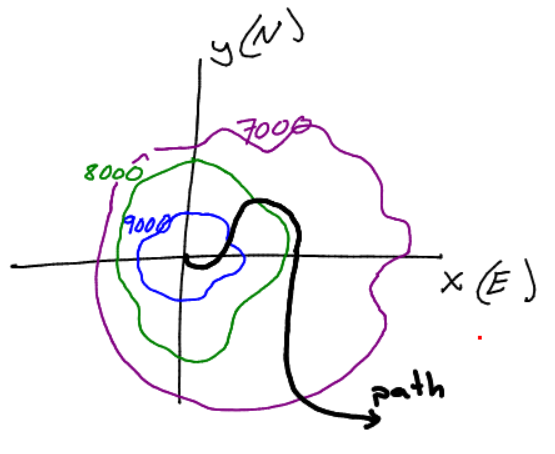 y(N)
7000
8000
9000
x (E)
path